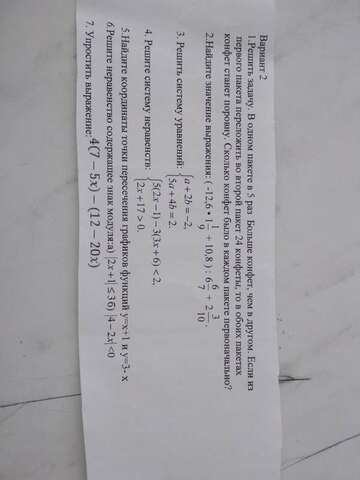 Вариант 2
1.Решить задачу. В одном пакете в 5 раз Больше конфет, чем в другом. Если из
первого пакета переложить во второй пакет 24 конфеты, то в обоих пакетах
конфет станет поровну. Сколько конфет было в каждом пакете первоначально?
2.Найдите значение выражения: (-12,6 • 1 1/9 + 10,8) : 6 6/7 + 2 3/10.
3. Решить систему уравнений: { a + 2b = -2, 5a + 4b = 2.
4. Решите систему неравенств: { 5(2x − 1) − 3(3x + 6) < 2, 2x + 17 > 0.
5.Найдите координаты точки пересечения графиков функций y=x+1 и y=3- x
6.Решите неравенство содержащее знак модуля:а) |2x+1| ≤ 3 б) |4 − 2x| < 0
7. Упростить выражение: 4(7 − 5x) − (12 − 20x)